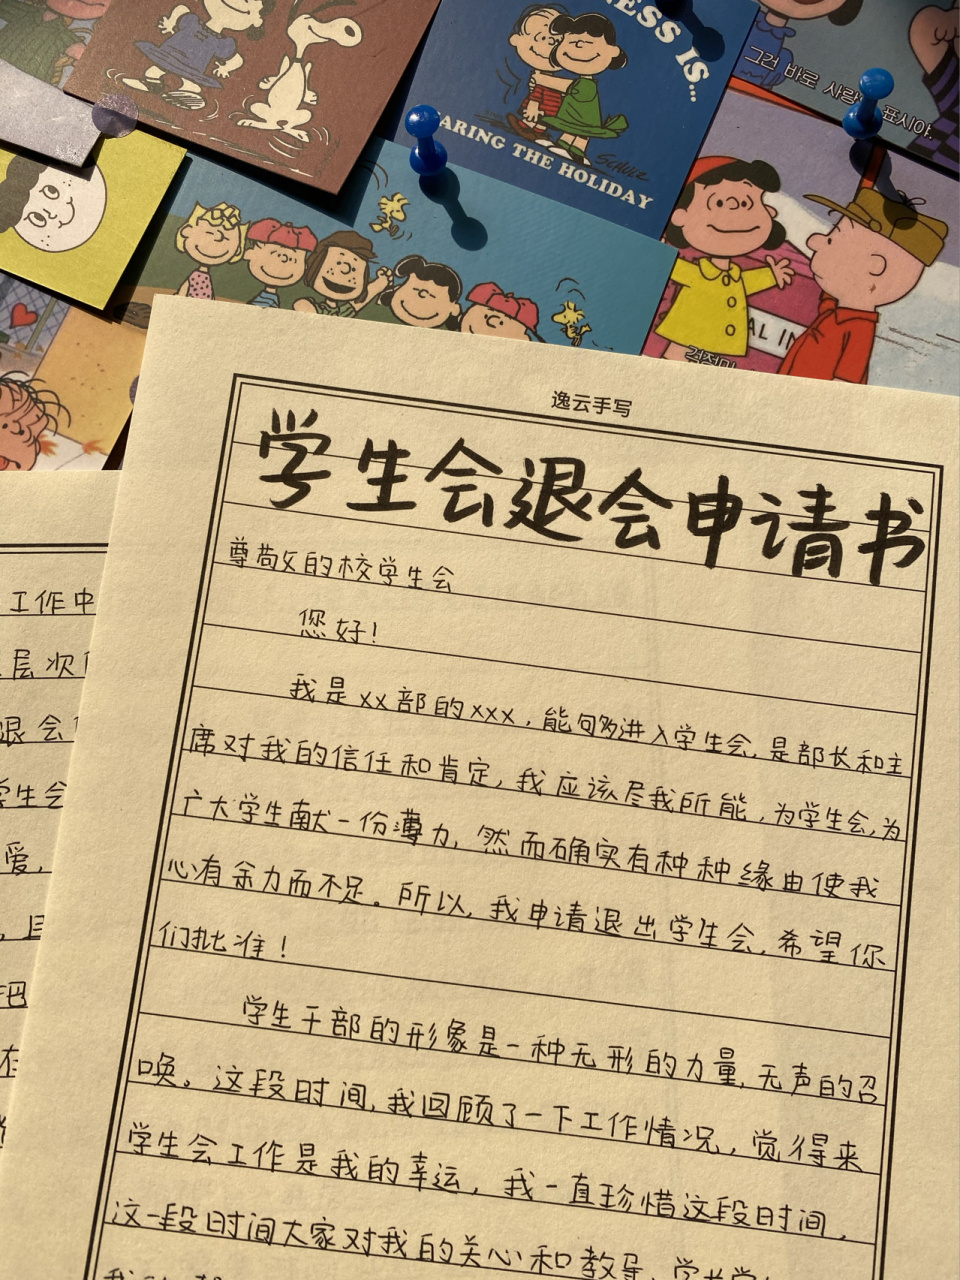 NESS IS...
ARING THE HOLIDAY
SCHULZ
그건 바로 사랑의 표시야.
AL IN
걱정마
逸云手写
学生会退会申请书
尊敬的校学生会
您好！
我是xx部的xxx，能够进入学生会，是部长和主
席对我的信任和肯定，我应该尽我所能，为学生会，为
广大学生献一份薄力，然而确实有种种缘由使我
心有余力而不足。所以，我申请退出学生会，希望你
们批准！
学生干部的形象是一种无形的力量，无声的召
唤。这段时间，我回顾了一下工作情况，觉得来
学生会工作是我的幸运，我一直珍惜这段时间，
这一段时间大家对我的关心和教导，学
工作中
层次
退会
学生会
爱，